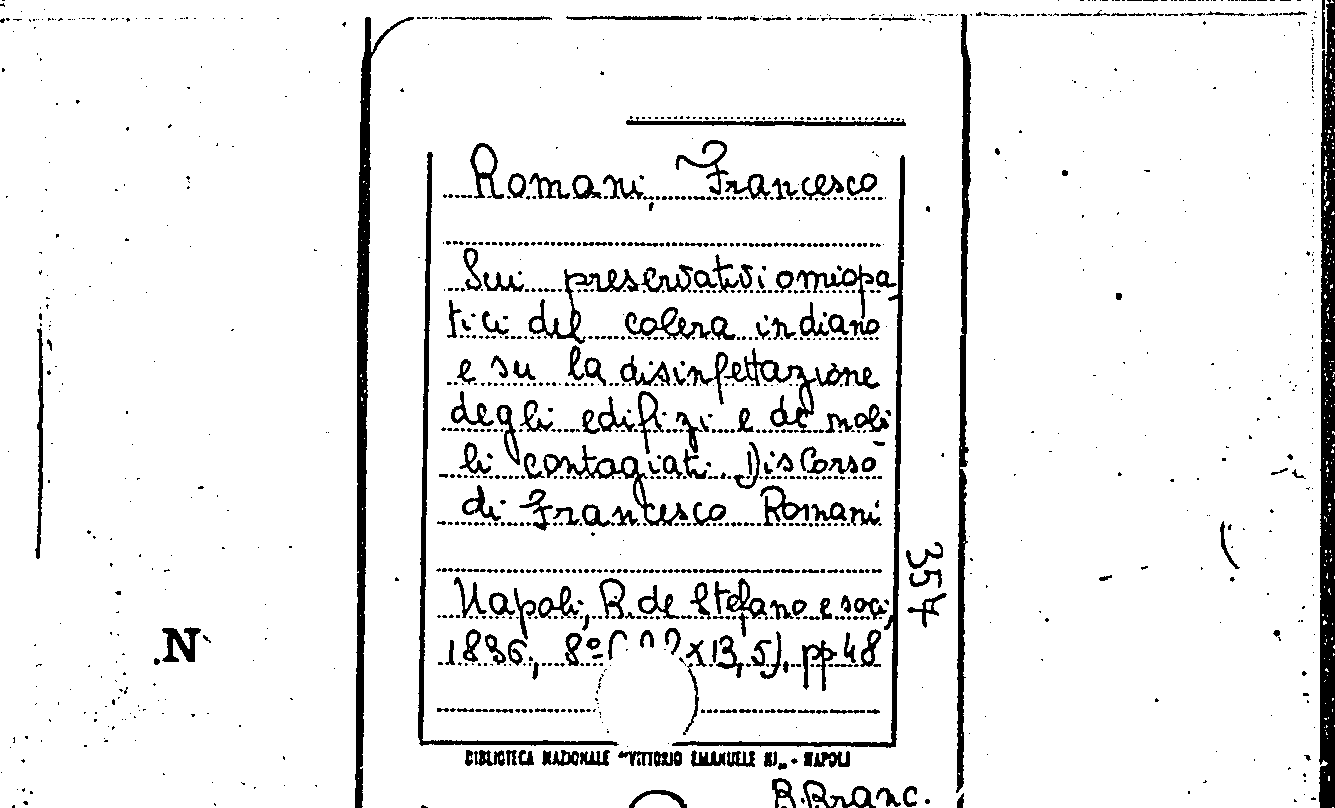 Romani, Francesco
Sui preservativi omiopa-
tici del colera indiano
e su la disinfettazione
degli edifizi e de' mobi-
li contagiati. Discorso
di Francesco Romani
Napoli, R. de Stefano e soci,
1836, 8º ( x13,5), pp 48
354
.N
BIBLIOTECA NAZIONALE "VITTORIO EMANUELE III„ - NAPOLI
B.Branc.